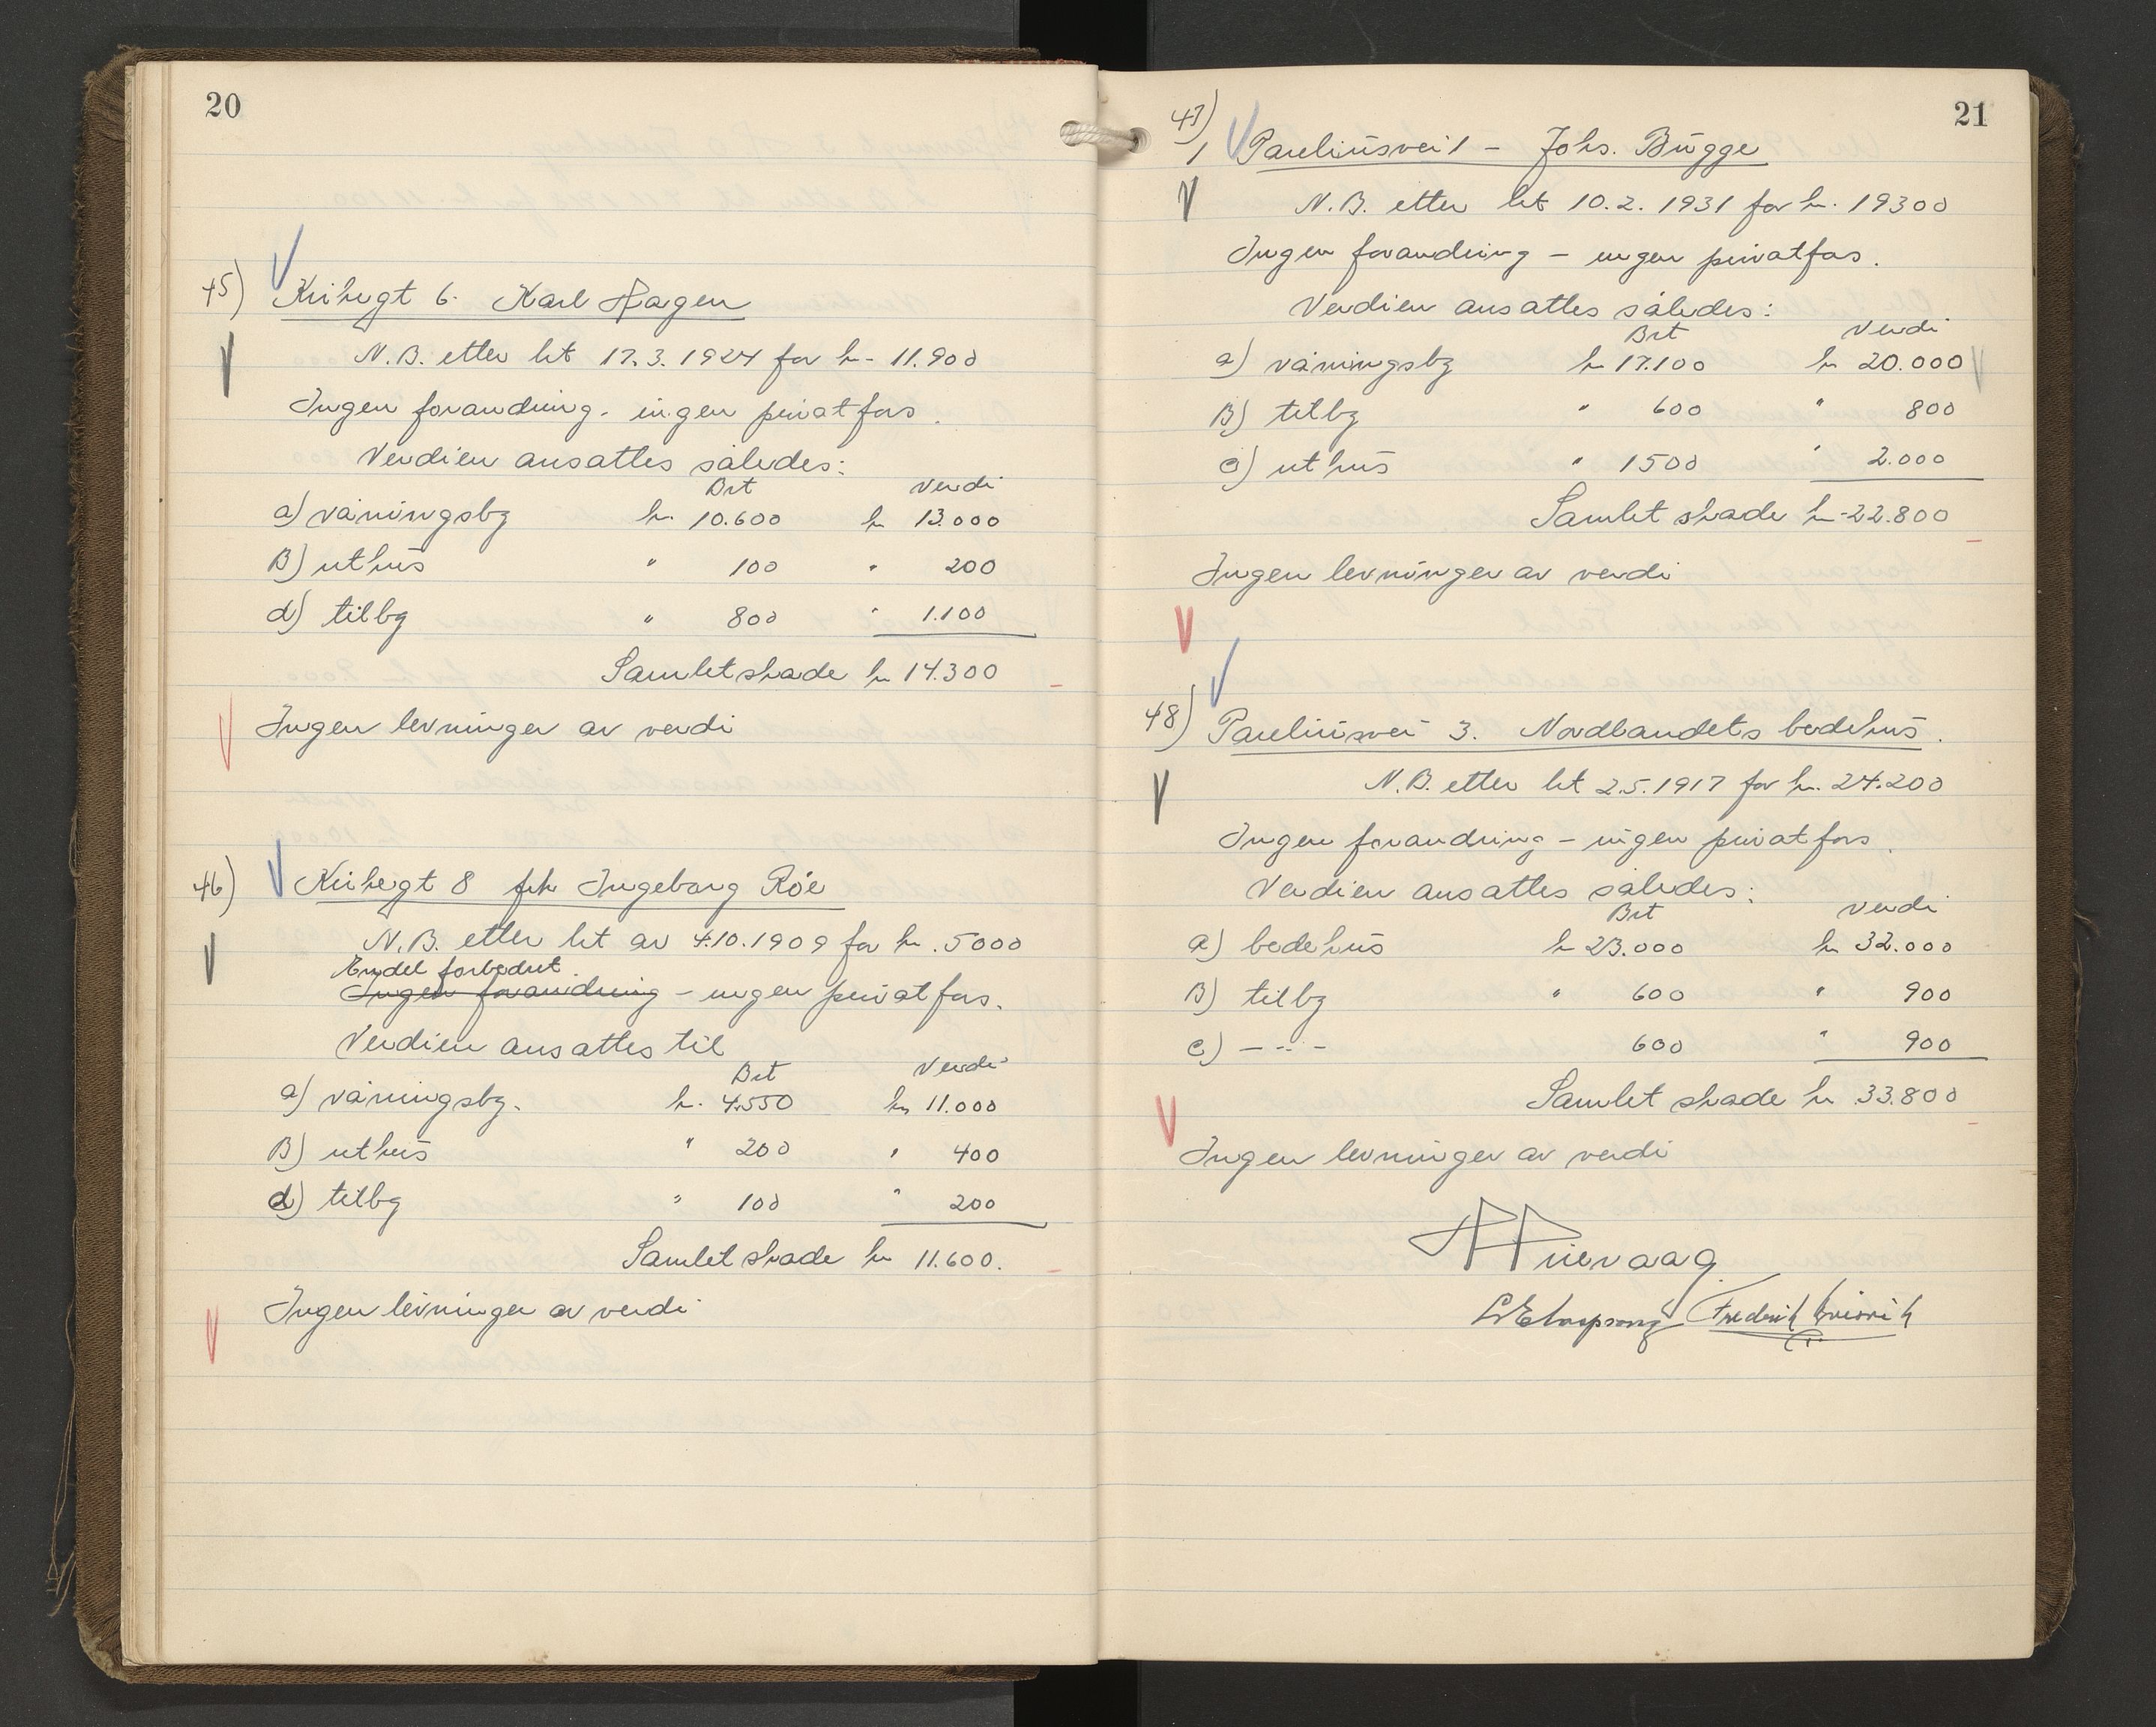 20
45) Kirkegt 6. Karl Hagen
N.B. etter tkt 17.3.1924 for kr. 11.900
Ingen forandring. ingen privatfors.
Verdien ansattes således:
Brt Verdi
a) våningsbg kr. 10.600 kr 13.000
B) uthus " 100 " 200
d) tilbg " 800 " 1.100
Samlet skade kr 14.300
Ingen levninger av verdi
46) Kirkegt 8 frk Ingeborg Röe
N.B. etter tkt av 4.10.1909 for kr. 5000
Endel forbedret.
Ingen forandring - ingen privatfors.
Verdien ansattes til
Brt Verdi
a) våningsbg. kr. 4.550 kr 11.000
B) uthus " 200 " 400
d) tilbg " 100 " 200
Samlet skade kr 11.600.
Ingen levninger av verdi
21
47) Pauliusvei 1 - Johs. Bugge
N.B. etter tkt 10.2.1931 for kr. 19300
Ingen forandring - ingen privatfors.
Verdien ansattes således:
Brt Verdi
a) våningsbg kr 17.100 kr 20.000
B) tilbg " 600 " 800
c) uthus " 1500 " 2.000
Samlet skade kr 22.800
Ingen levninger av verdi
48) Pauliusvei 3. Nordlandets bedehus.
N.B. etter tkt 2.5.1917 for kr. 24.200
Ingen forandring - ingen privatfors.
Verdien ansattes således:
Brt Verdi
a) bedehus kr 23.000 kr 32.000
B) tilbg " 600 " 900
c) -"- 600 " 900
Samlet skade kr 33.800
Ingen levninger av verdi
Frederik